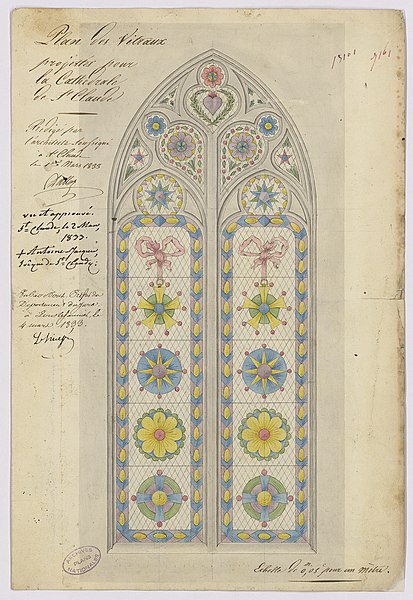 Plan des Vitraux
projettés pour
la Cathédrale
de St Claude
Rédigé par
l'architecte soussigné
à St Claude
le 1er Mars 1833
vu et approuvé.
St Claude, le 2 Mars,
1833.
+ Antoine Jacques,
Evêque de St Claude.
Département du Jura
à Lons-le-Saunier, le
4 mars 1833.
13101
7161
ARCHIVES
PLANS
NATIONALES
Echelle de 0,05 pour un mètre.